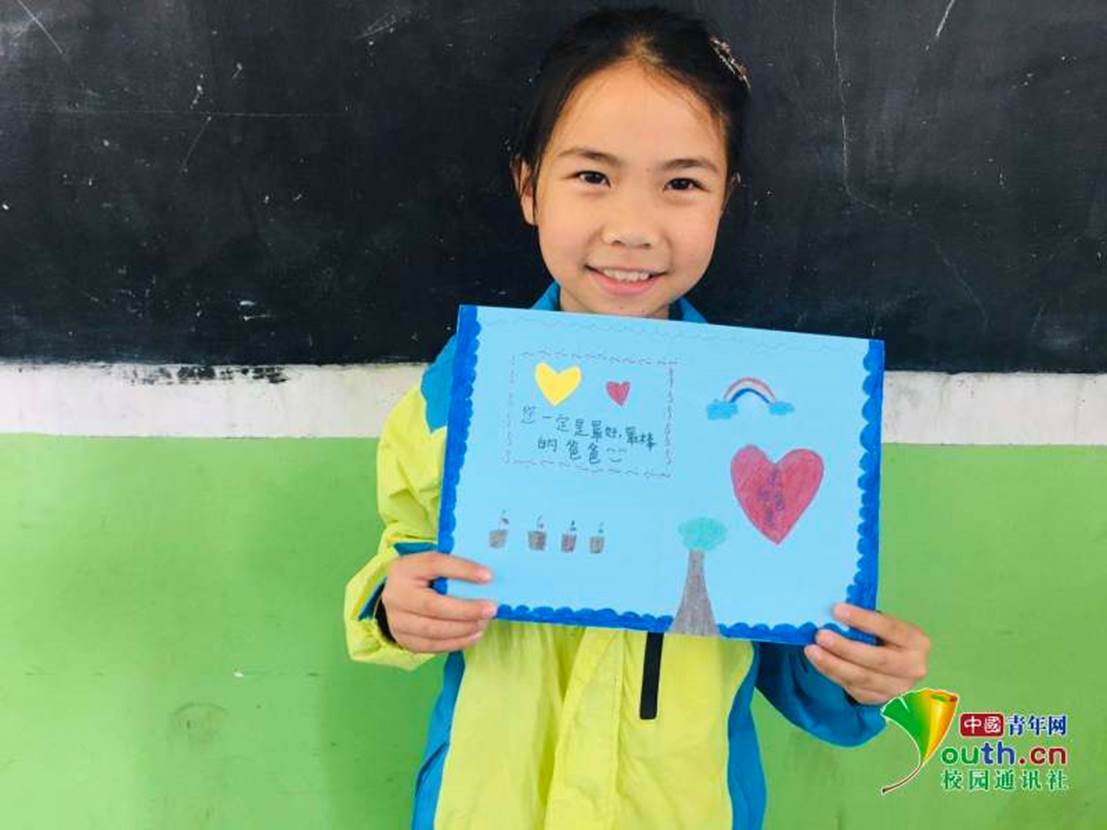 您一定是最好,最棒
的爸爸
中國青年网
Youth.cn
校园通讯社